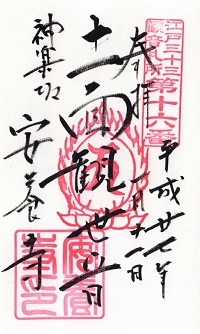 江戸三十三
観音札所
第十六番
奉拝
平成廿七年
一月十一日
十一面観世音
神楽坂
安養寺